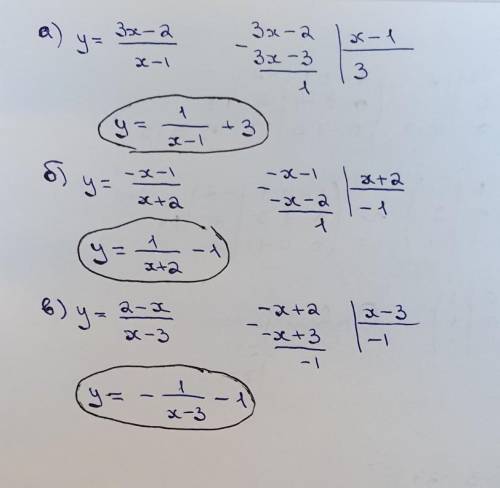 а) y = (3x-2)/(x-1)   - 3x-2 | x-1
3x-3 | 3
1
y = 1/(x-1) + 3
б) y = (-x-1)/(x+2)   - -x-1 | x+2
-x-2 | -1
1
y = 1/(x+2) - 1
в) y = (2-x)/(x-3)   - -x+2 | x-3
-x+3 | -1
-1
y = - 1/(x-3) - 1